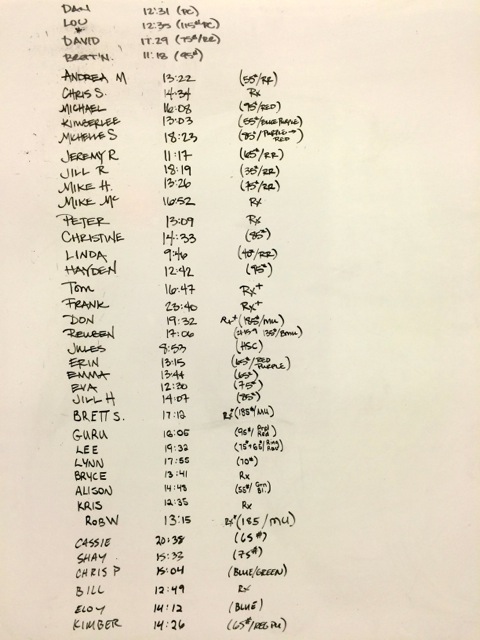 DAN 12:31 (PC)
LOU 12:35 (115# PC)
DAVID 17:29 (75#/RR)
BRETT N. 11:18 (95#)
ANDREA M 13:22 (55#/RR)
CHRIS S. 14:34 Rx
MICHAEL 16:08 (95#/RED)
KIMBERLEE 13:03 (55#/BLUE PURPLE)
MICHELLE S 18:23 (85#/PURPLE → RED)
JEREMY R 11:17 (65#/RR)
JILL R 18:19 (35#/RR)
MIKE H. 13:26 (75#/RR)
MIKE Mc 16:52 Rx
PETER 13:09 Rx
CHRISTINE 14:33 (85#)
LINDA 9:46 (40#/RR)
HAYDEN 12:42 (95#)
TOM 16:47 Rx+
FRANK 23:40 Rx+
DON 19:32 Rx+ (185#/MU)
REUBEN 17:06 135#/8MU)
JULES 8:53 (HSC)
ERIN 13:15 (65#/RED PURPLE)
EMMA 13:44 (65#)
EVA 12:30 (75#)
JILL H 14:07 (85#)
BRETT S. 17:12 Rx+ (185#/MU)
GURU 16:05 (95#/
LEE 19:32 (75+65/Ring Row)
LYNN 17:55 (70#)
BRYCE 13:41 Rx
ALISON 14:48 (55#/Grn Bl.)
KRIS 12:35 Rx
ROB W 13:15 Rx+ (185/MU)
CASSIE 20:38 (65#)
SHAY 15:33 (75#)
CHRIS P 15:04 (BLUE/GREEN)
BILL 12:49 Rx
ELOY 14:12 (BLUE)
KIMBER 14:26 (65#/REG PU)